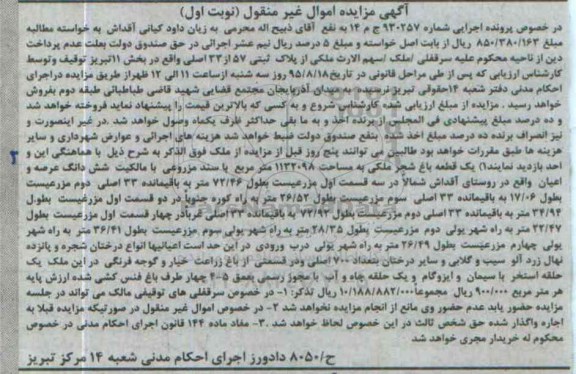 آگهی مزایده اموال غیر منقول (نوبت اول)
در خصوص پرونده اجرایی شماره ۹۳۰۲۵۷ ج م ۱۴ به نفع آقای ذبیح اله محرمی به زیان داود کیانی آقداش به خواسته مطالبه
مبلغ ۸۵۰/۳۸۰/۱۶۳ ریال از بابت اصل خواسته و مبلغ ۵ درصد ریال نیم عشر اجرائی در حق صندوق دولت بعلت عدم پرداخت
دین از ناحیه محکوم علیه سرقفلی /ملک /سهم الارث ملکی از پلاک ثبتی ۵۷ از ۳۳ اصلی واقع در بخش ۱۱ تبریز توقیف وتوسط
کارشناس ارزیابی که پس از طی مراحل قانونی در تاریخ ۹۵/۸/۱۸ روز سه شنبه ازساعت ۱۱ الی ۱۲ ظهراز طریق مزایده دراجرای
احکام مدنی دفتر شعبه ۱۴ حقوقی تبریز نرسیده به میدان آذربایجان مجتمع قضایی شهید قاضی طباطبائی طبقه دوم بفروش
خواهد رسید . مزایده از مبلغ ارزیابی شده کارشناس شروع و به کسی که بالاترین قیمت را پیشنهاد نماید فروخته خواهد شد
و ده درصد مبلغ پیشنهادی فی المجلس از برنده اخذ و به ما بقی حداکثر ظرف یکماه وصول خواهد شد .در غیر اینصورت و
نیز انصراف برنده ده درصد مبلغ اخذ شده بنفع صندوق دولت ضبط خواهد شد هزینه های اجرائی و عوارض شهرداری و سایر
هزینه ها طبق مقررات خواهد بود طالبین می توانند پنج روز قبل از مزایده از ملک فوق الذکر به شرح ذیل با هماهنگی این و
احد بازدید نمایند ۱) یک قطعه باغ شجر ملکی به مساحت ۱۱۳۲۰۹۸ متر مربع با سند مزروعی با مالکیت شش دانگ عرصه و
اعیان واقع در روستای آقداش شمالا در سه قسمت اول مزرعیست بطول ۷۲/۴۶ متر به باقیمانده ۳۳ اصلی دوم مزرعیست
بطول ۱۷/۰۶ به باقیمانده ۳۳ اصلی سوم مزرعیست بطول ۲۶/۵۲ متر به پلی کوره جنوبا در دو قسمت اول مزرعیست بطول
۳۴/۹۴ متر به باقیمانده ۳۳ اصلی دوم مزرعیست بطول ۷۳/۹۲ به باقیمانده ۳۳ اصلی غرباًدر چهار قسمت اول مزرعیست بطول
۲۲/۴۷ متر به راه شهر پولی دوم مزرعیست بطول ۲۸/۳۵ متر به راه شهر پولی سوم مزرعیست بطول ۳۶/۴۱ متر به راه شهر
پولی چهارم مزرعیست بطول ۲۶/۴۹ متر به راه شهر پولی درب ورودی در این حد است اعیانیها انواع درختان شجره و پانزده
نهال زرد آلو سیب و گلابی و سایر درختان بتعداد ۷۰۰ اصلی ودر قسمتی از باغ زراعت خیار و گوجه فرنگی در این ملک یک
حلقه استخر با سیمان و ایزوگام و یک حلقه چاه و آب با مجوز رسمی بعمق ۵-۴ چهار طرف باغ فنس کشی شده ارزش پایه
هر متر مربع ۹۰۰/۰۰۰ ریال مجموعا ۱۰/۱۸۸/۸۸۲/۰۰۰ ریال تذکر: ۱- در خصوص سرقفلی های توقیفی مالک می تواند در جلسه
مزایده حضور یابد عدم حضور وی مانع از انجام مزایده نخواهد شد ۲- در خصوص اموال غیر منقول در صورتیکه مزایده قبلا به
اجاره واگذار شده حق شخص ثالث در این خصوص لحاظ خواهد شد .۳- مفاد ماده ۱۴۴ قانون اجرای احکام مدنی در خصوص
محکوم له خریدار مجری خواهد شد
ح/۸۰۵۰ دادورز اجرای احکام مدنی شعبه ۱۴ مرکز تبریز